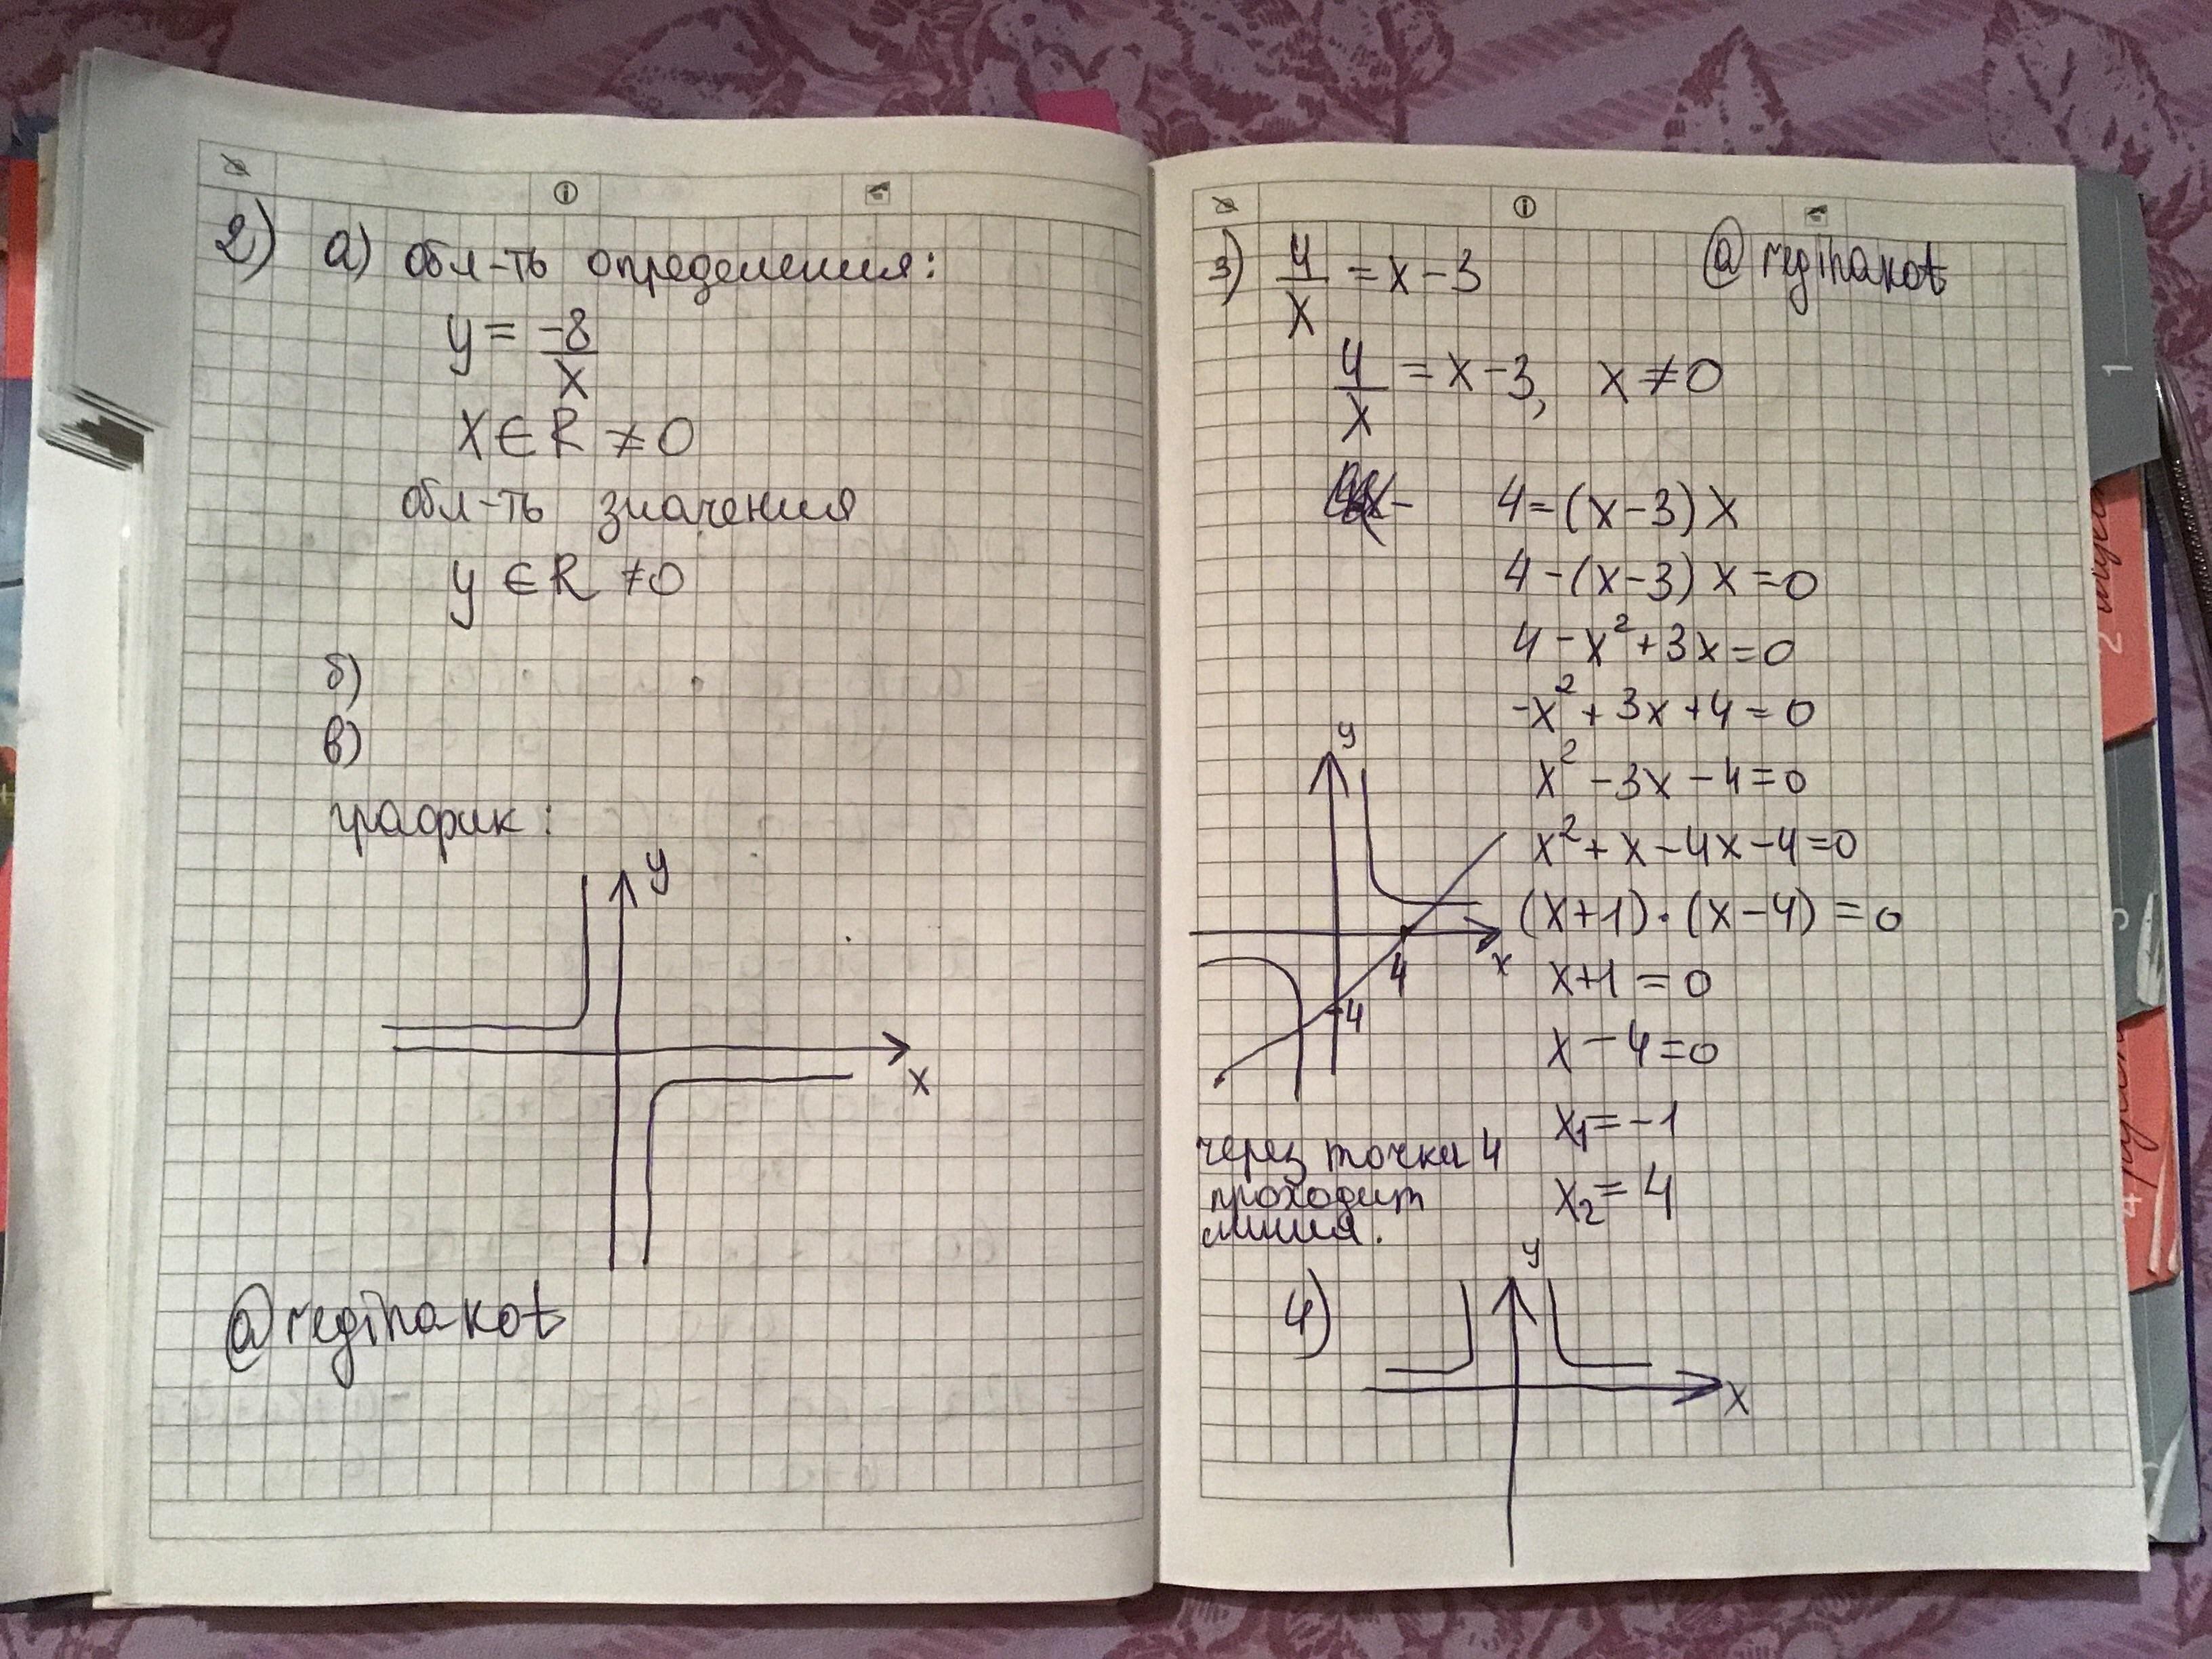 2) а) обл-ть определения:
y = -8/x
x ∈ R ≠ 0
обл-ть значения
y ∈ R ≠ 0
б)
в)
график:
y
x
@reginakot
3) 4/x = x - 3
@reginakot
4/x = x - 3, x ≠ 0
4 = (x - 3) x
4 - (x - 3) x = 0
4 - x² + 3x = 0
-x² + 3x + 4 = 0
x² - 3x - 4 = 0
x² + x - 4x - 4 = 0
(x + 1) · (x - 4) = 0
x + 1 = 0
x - 4 = 0
x₁ = -1
x₂ = 4
y
x
4
-4
через точки 4
проходит
линия.
4)
y
x
1
2
3
4